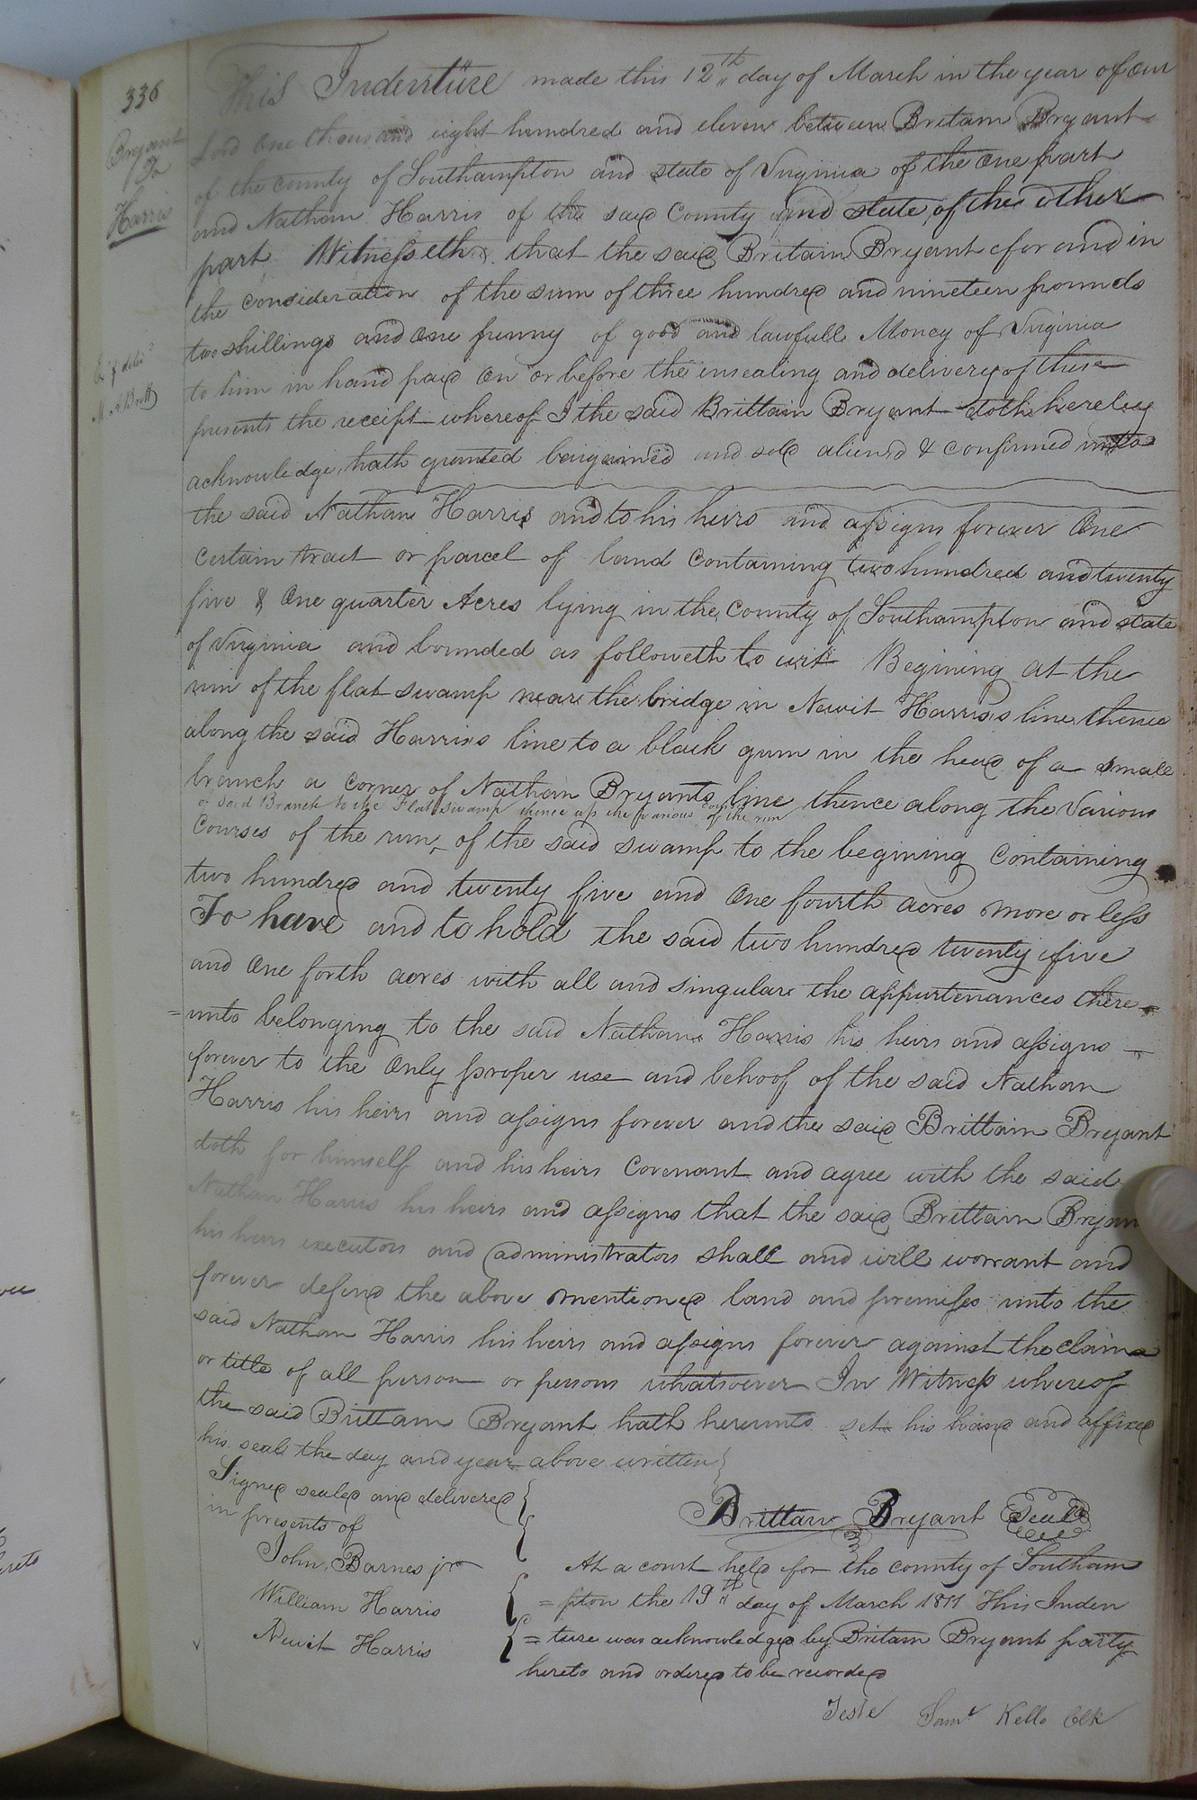 336
Bryant
To
Harris
This Indenture made this 12th day of March in the year of our
Lord One thousand eight hundred and eleven between Britain Bryant
of the county of Southampton and state of Virginia of the one part
and Nathan Harris of the said County and state of the other
part Witnesseth that the said Britain Bryant for and in
the consideration of the sum of three hundred and nineteen pounds
two shillings and One penny of good and lawfull Money of Virginia
to him in hand paid On or before the ensealing and delivery of these
presents the receipt whereof I the said Brittain Bryant doth hereby
acknowledge hath granted bargained and sold aliend & confirmed unto
the said Nathan Harris and to his heirs and assigns forever One
certain tract or parcel of land Containing two hundred and twenty
five & One quarter Acres lying in the County of Southampton and state
of Virginia and bounded as followeth to wit Begining at the
run of the flat swamp near the bridge in Newit Harris's line thence
along the said Harriss line to a black gum in the head of a small
branch a Corner of Nathan Bryants line thence along the Various
of said Branch to the Flat swamp thence up the various courses of the run
Courses of the run, of the said swamp to the begining Containing
two hundred and twenty five and One fourth acres more or less
To have and to hold the said two hundred twenty five
and One forth acres with all and singular the appurtenances there=
=unto belonging to the said Nathan Harris his heirs and assigns
forever to the Only proper use and behoof of the said Nathan
Harris his heirs and assigns forever and the said Brittain Bryant
doth for himself and his heirs Covenant and agree with the said
Nathan Harris his heirs and assigns that the said Brittain Bryan
his heirs executors and administrators shall and will worrant and
forever defend the above mentioned land and premises unto the
said Nathan Harris his heirs and assigns forever against the claim
or title of all person or persons whatsoever In Witness whereof
the said Brittain Bryant hath hereunto set his hand and affixed
his seal the day and year above written
Signed sealed and delivered
in presents of
John Barnes jr
William Harris
Newit Harris
Brittain Bryant Seal
At a court held for the county of Southam
=pton the 19th day of March 1811 This Inden
=ture was acknowledged by Britain Bryant party
hereto and ordered to be recorded
Teste Saml Kello Clk